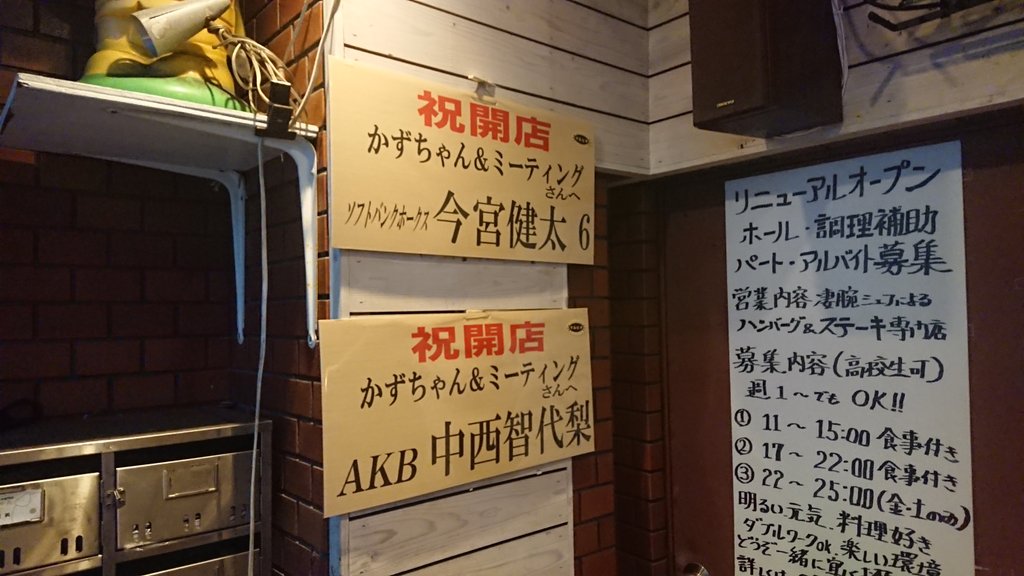 祝開店
かずちゃん&ミーティング
さんへ
ソフトバンクホークス 今宮健太 6
祝開店
かずちゃん&ミーティング
さんへ
AKB 中西智代梨
リニューアルオープン
ホール・調理補助
パート・アルバイト募集
営業内容 凄腕シェフによる
ハンバーグ&ステーキ専門店
募集内容(高校生可)
週1〜でも OK!!
① 11〜15:00 食事付き
② 17〜22:00 食事付き
③ 22〜25:00(金・土のみ)
明るい元気 料理好き
ダブルワークok 楽しい環境
どうぞ一緒に